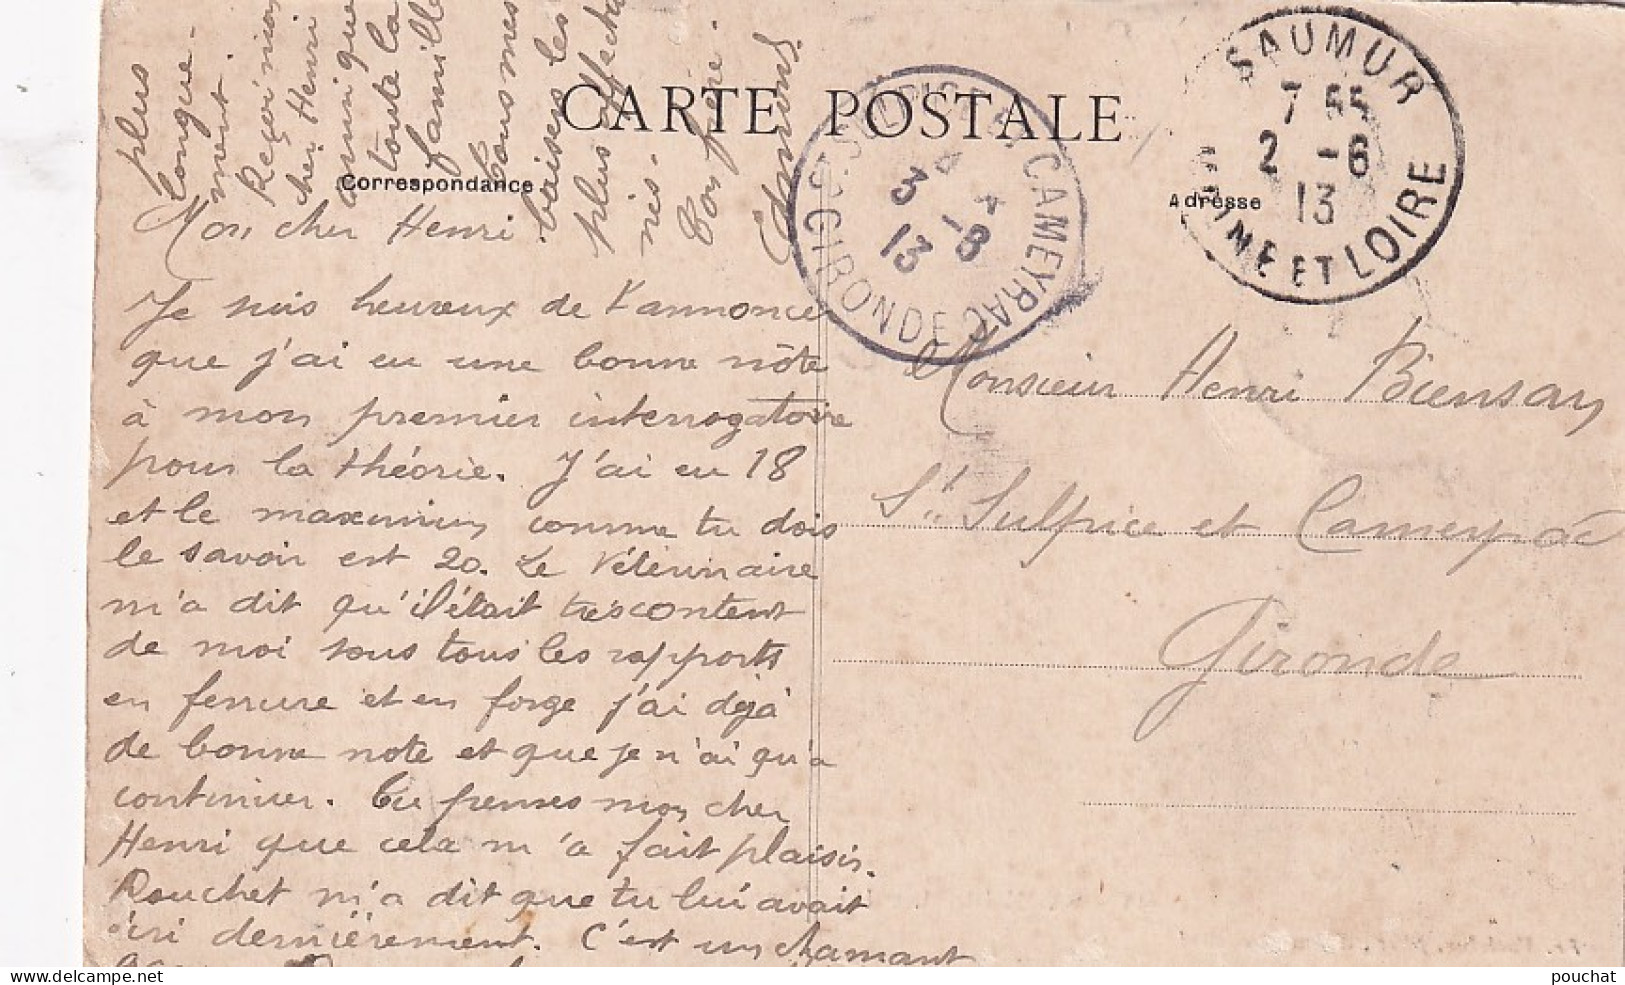 CARTE POSTALE
Correspondance
Adresse
SAUMUR
7 55
2 -6
13
MAINE ET LOIRE
CAMEYRAC
3 -6
13
GIRONDE
Mon cher Henri
Je suis heureux de t'annoncer
que j'ai eu une bonne nôte
à mon premier interrogatoire
pour la théorie. J'ai eu 18
et le maximum comme tu dois
le savoir est 20. Le Vétérinaire
m'a dit qu'il était très content
de moi sous tous les rapports
en ferrure et en forge j'ai déjà
de bonne note et que je n'ai qu'a
continuer. Tu penses mon cher
Henri que cela m'a fait plaisir.
Rouchet m'a dit que tu lui avait
écri dernièrement. C'est un chamant
plus
longue-
ment.
Reçoi mon
cher Henri
ainsi que
toute la
famille
tous mes
baisers les
plus affectu
nés.
Ton frère.
Edmond
Monsieur Henri Biensan
St Sulpice et Cameyrac
Gironde
pouchat